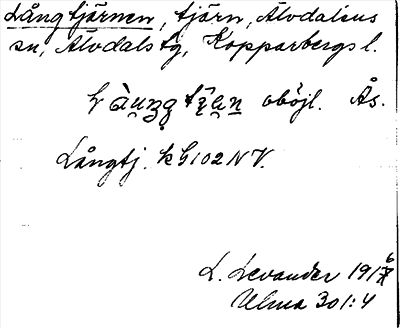 Långtjärnen, tjärn, Älvdalens
sn, Älvdals tg, Kopparbergs l.
oböjl. Ås.
Långtj. kb 102 NV.
L. Levander 1916
Ulma 301:4